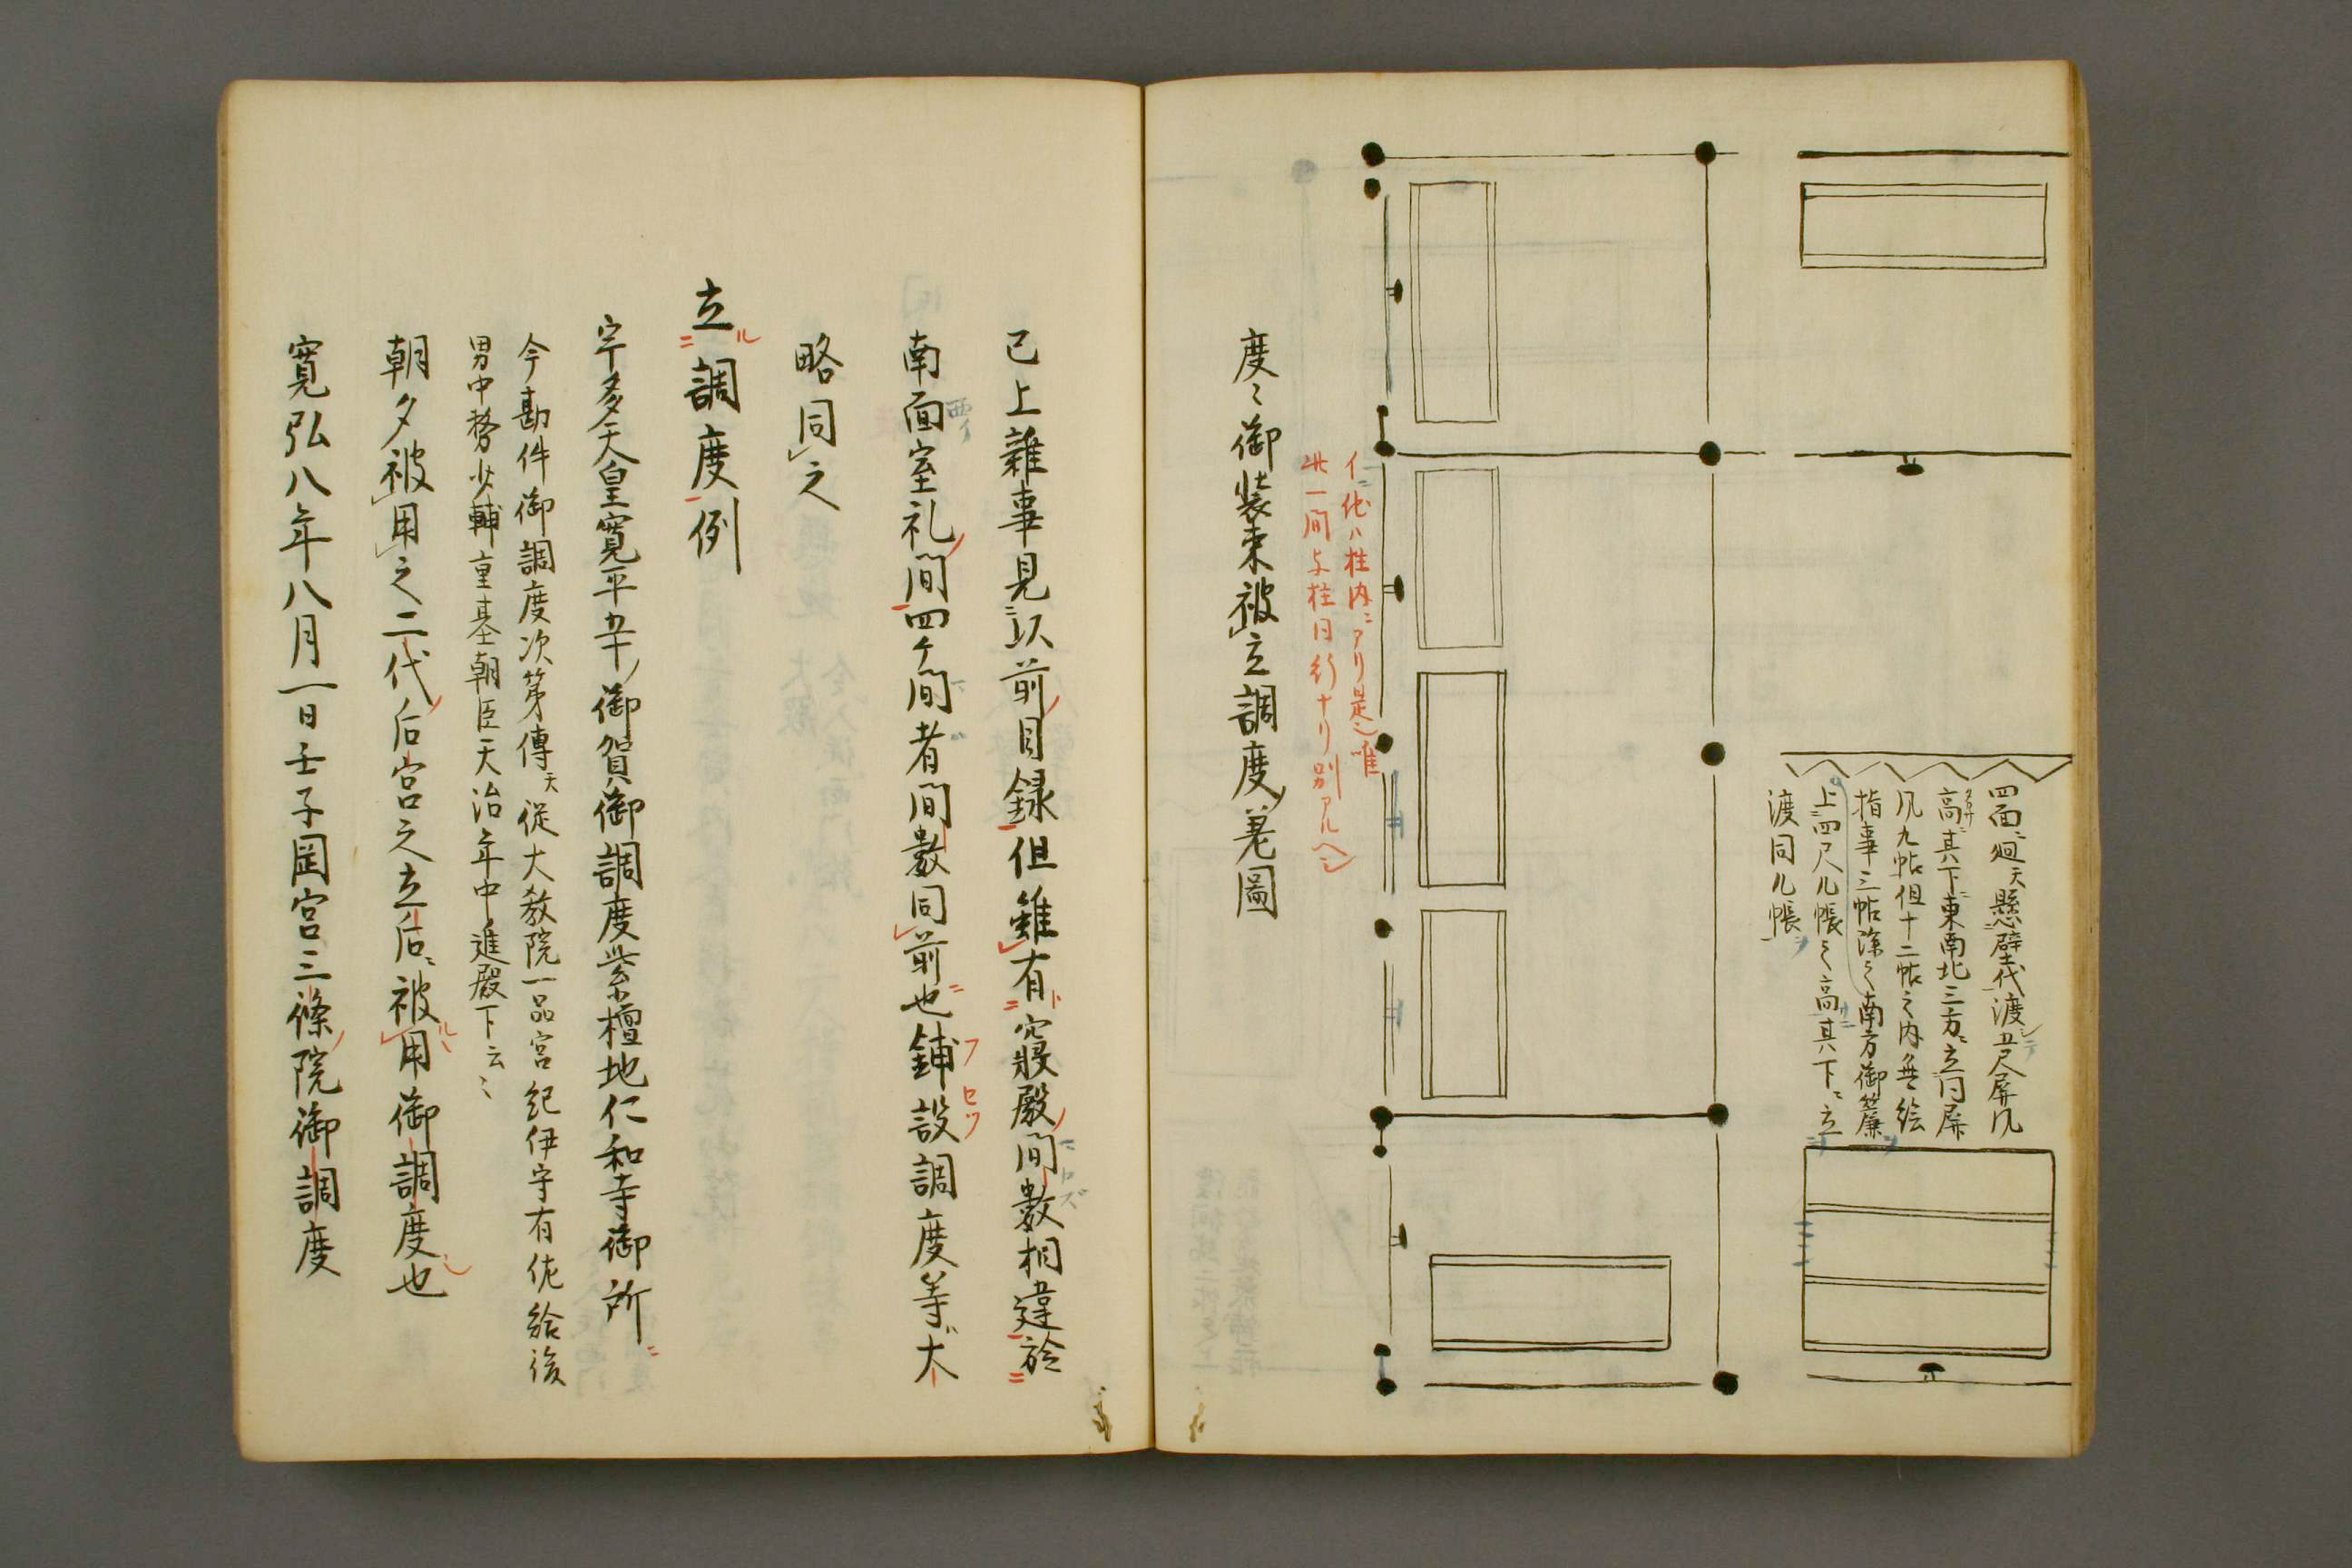 四面ニ廻天懸壁代渡五尺屏风
高其下東南北三方ニ立同屏
风九帖但十二帖之内無絵
指事三帖除之南方御簾
上四尺几帳之高其下ニ立
渡同几帳
イニ他ハ柱内ニアリ是ニ唯
此一間与柱同行ナリ別アルヘシ
度〻御装束被立調度差圖
已上雜事見以前目録但雖有寢殿間數相違於
南面室礼間四ケ間者間數同前也鋪設調度等大
略同之
立調度例
宇多天皇寛平五年御賀御調度紫檀地仁和寺御所
今勘件御調度次第傳天従大教院一品宮紀伊守有佐給後
男中務少輔重基朝臣天治年中進殿下云〻
朝夕被用之二代后宮之立后ニ被用御調度也
寛弘八年八月一日壬子岡宮三條院御調度